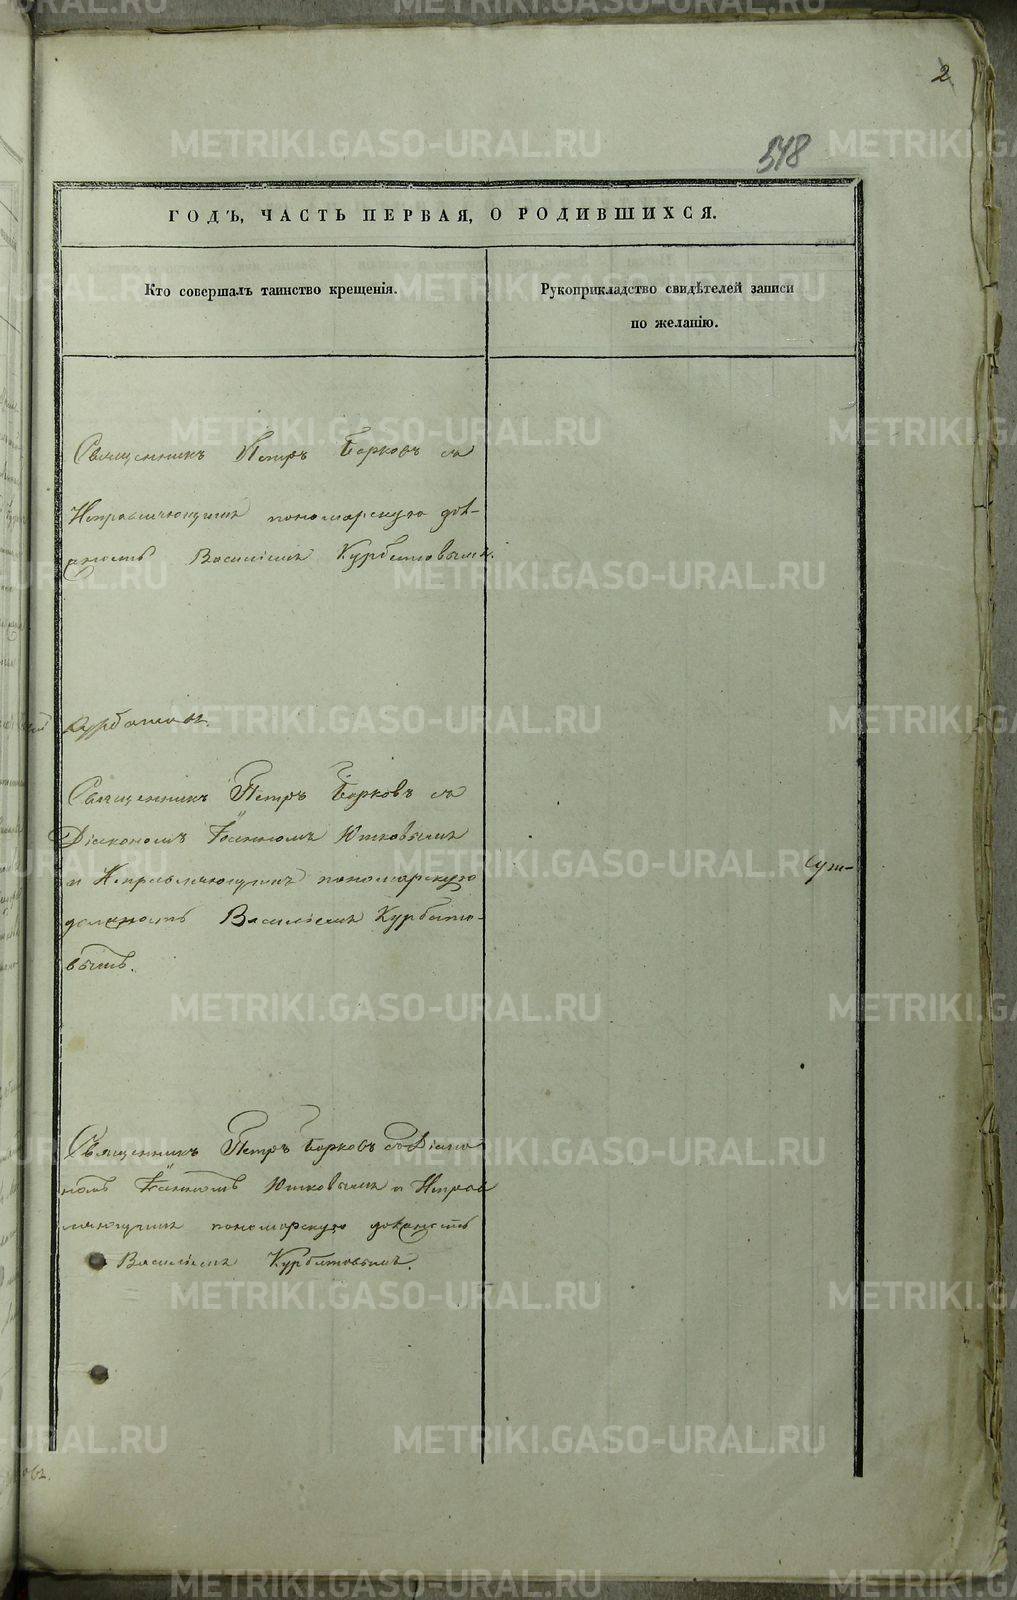 2
548
ГОДЪ, ЧАСТЬ ПЕРВАЯ, О РОДИВШИХСЯ.
Кто совершалъ таинство крещенія.
Рукоприкладство свидѣтелей записи
по желанію.
Священникъ Петръ Борковъ съ
Исправляющимъ пономарскую дол-
жность Василіемъ Курбатовымъ.
Курбатовъ.
Священникъ Петръ Борковъ съ
Діакономъ Іоанномъ Ютковымъ
и Исправляющимъ пономарскую
должность Василіемъ Курбато-
вымъ.
Священникъ Петръ Борковъ съ Діако
номъ Іоанномъ Ютковымъ и Исправ
ляющимъ пономарскую должность
Василіемъ Курбатовымъ.
METRIKI.GASO-URAL.RU